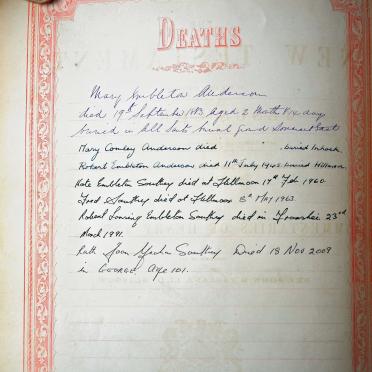 DEATHS
Mary Embleton Anderson
died 19th September 1883 Aged 2 Months & 14 days
buried in Hill burial ground Somerset East
Mary Conley Anderson died buried
Robert Embleton Anderson died 11th July 1942 buried
Kate Embleton Southey died at 17th Feb 1960.
Ford Southey died at 8th May 1963.
Robert Loraing Embleton Southey died in 23rd
March 1991.
Ruth Joan Southey Died 18 Nov 2009
in GEORGE Age 101.